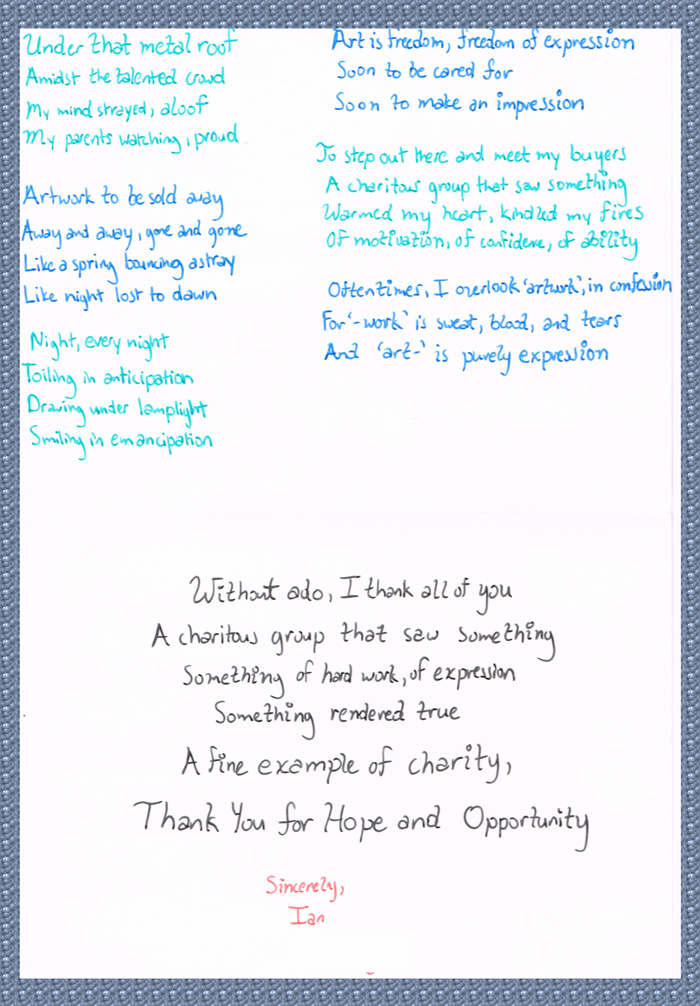 Under that metal roof
Amidst the talented crowd
My mind strayed, aloof
My parents watching, proud
Artwork to be sold away
Away and away, gone and gone
Like a spring bouncing astray
Like night lost to dawn
Night, every night
Toiling in anticipation
Drawing under lamplight
Smiling in emancipation
Art is freedom, freedom of expression
Soon to be cared for
Soon to make an impression
To step out there and meet my buyers
A charitous group that saw something
Warmed my heart, kindled my fires
Of motivation, of confidence, of ability
Oftentimes, I overlook 'artwork', in confession
For '-work' is sweat, blood, and tears
And 'art-' is purely expression
Without ado, I thank all of you
A charitous group that saw something
Something of hard work, of expression
Something rendered true
A fine example of charity,
Thank You for Hope and Opportunity
Sincerely,
Ian